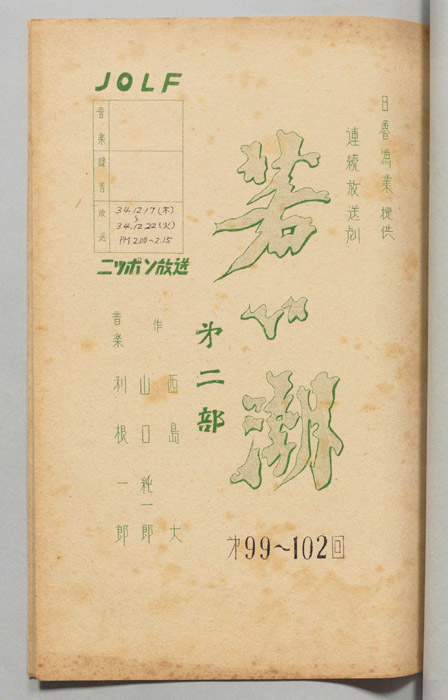 JOLF
音楽
録音
放送
34.12.17(木)
~
34.12.22(火)
PM 2.00~2.15
ニッポン放送
日魯漁業提供
連続放送劇
若い潮
第二部
作 西島 大
山口純一郎
音楽 利根一郎
第99~102回